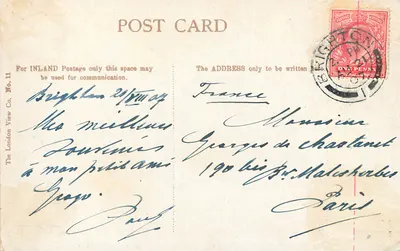 POST CARD
For INLAND Postage only this space may
be used for communication.
The ADDRESS only to be written
The London View Co. No. 11
BRIGHTON
ONE PENNY
Brighton 20/VIII 07
Mes meilleurs
à mon petit ami
France
Monsieur
Georges de Chastanet
190 bis Bd Malesherbes
Paris